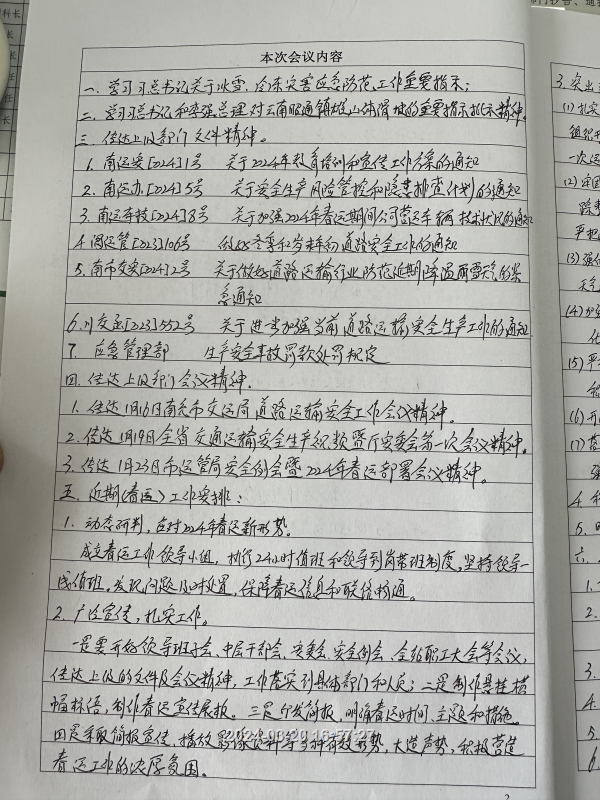 本次会议内容
一、学习习总书记关于冰雪、冷冻灾害应急防范工作重要指示；
二、学习习总书记和李强总理对云南昭通镇雄山体滑坡的重要指示批示精神。
三、传达上级部门文件精神。
1. 南运安[2024]1号 关于2024年教育培训和宣传工作方案的通知
2. 南运办[2024]5号 关于安全生产风险管控和隐患排查计划的通知
3. 南运车技[2024]8号 关于加强2024年春运期间公司营运车辆技术状况的通知
4. 阆运管[2023]106号 做好冬季和岁末年初道路安全工作的通知
5. 南市交安[2024]2号 关于做好道路运输行业防范近期降温雨雪天气的紧
急通知
6. 川交函[2023]552号 关于进一步加强当前道路运输安全生产工作的通知
7. 应急管理部 生产安全事故罚款处罚规定
四、传达上级部门会议精神。
1. 传达1月16日南充市交运局道路运输安全工作会议精神。
2. 传达1月19日全省交通运输安全生产视频暨厅安委会第一次会议精神。
3. 传达1月23日市运管局安全例会暨2024年春运部署会议精神。
五、近期(春运)工作安排：
1. 动态研判，应对2024年春运新形势。
成立春运工作领导小组，执行24小时值班和领导到岗带班制度，坚持领导一
线值班。发现问题及时处置，保障春运信息和联络畅通。
2. 广泛宣传，扎实工作。
一是要开好领导班子会、中层干部会、安委会、安全例会、全站职工大会等会议，
传达上级的文件及会议精神，工作落实到具体部门和人员；二是制作悬挂横
幅标语，制作春运宣传展板。三是个发简报，明确春运时间、主段和措施。
四是采取简报宣传、播放影像资料等多种有效形势，大造声势，积极营造
春运工作的浓厚氛围。
2024-08-20 16:57:27
3. 突出
(1) 扎实
组织
一次运
(2) 牢固
隐
平把
(3) 强
天气
(4) 加强
化
(5) 严
(6) 开
(7) 落
强
4.
5.
六、
1.
2.
3.
4.
5.
6